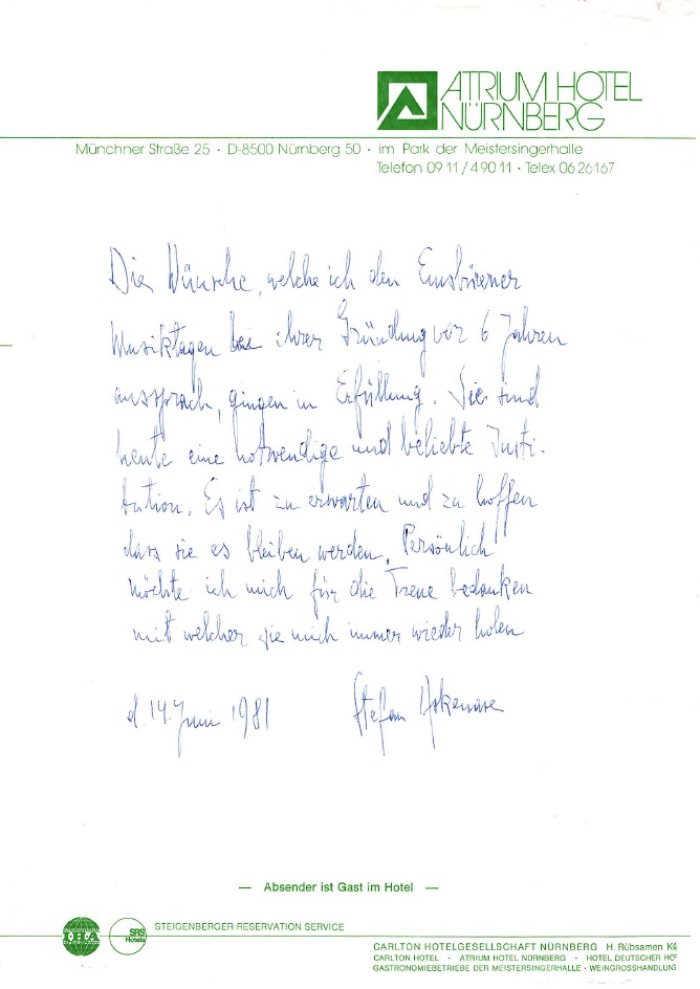 ATRIUM HOTEL
NÜRNBERG
Münchner Straße 25 · D-8500 Nürnberg 50 · im Park der Meistersingerhalle
Telefon 09 11 / 4 90 11 · Telex 06 26167
Die Wünsche, welche ich den Emsbürener
Musiktagen bei ihrer Gründung vor 6 Jahren
aussprach, gingen in Erfüllung. Sie sind
heute eine notwendige und beliebte Insti-
tution. Es ist zu erwarten und zu hoffen
dass sie es bleiben werden. Persönlich
möchte ich mich für die Treue bedanken
mit welcher sie mich immer wieder holen
d. 14. Juni 1981 Stefan Askenase
— Absender ist Gast im Hotel —
SRS
Hotels
STEIGENBERGER RESERVATION SERVICE
CARLTON HOTELGESELLSCHAFT NÜRNBERG H. Rübsamen KG
CARLTON HOTEL · ATRIUM HOTEL NÜRNBERG · HOTEL DEUTSCHER HOF
GASTRONOMIEBETRIEBE DER MEISTERSINGERHALLE · WEINGROSSHANDLUNG